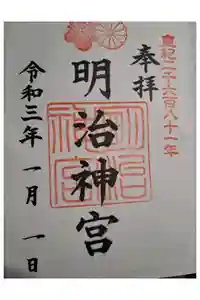 皇紀二千六百八十一年
奉拝
明治神宮
令和三年 一月 一日
明治神宮